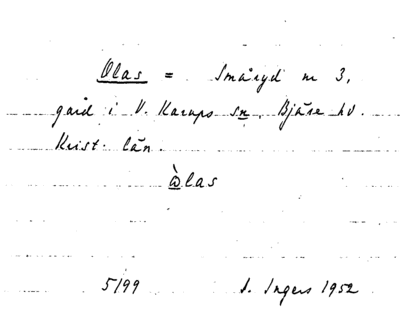 Olas = Småryd nr 3,
gård i V. Karups sn, Bjäre hd
Krist. län.
òlas
5199 I. Ingers 1952